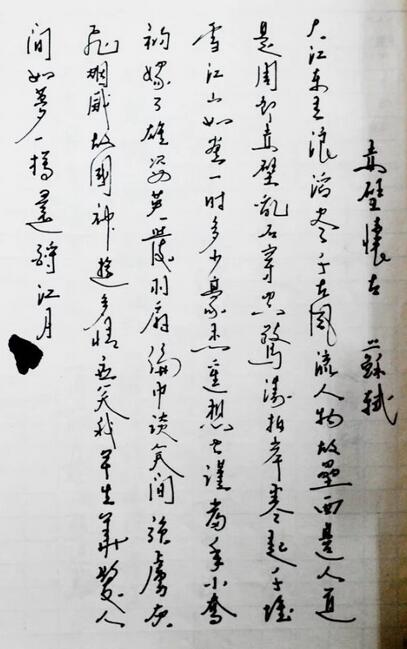 赤壁懷古 蘇軾
大江東去浪淘盡千古風流人物故壘西邊人道
是周郎赤壁亂石穿空驚濤拍岸卷起千堆
雪江山如畫一時多少豪杰遥想公瑾當年小喬
初嫁了雄姿英發羽扇綸巾談笑間強虜灰
飛烟滅故國神遊多情應笑我早生華髮人
間如夢一樽還酹江月